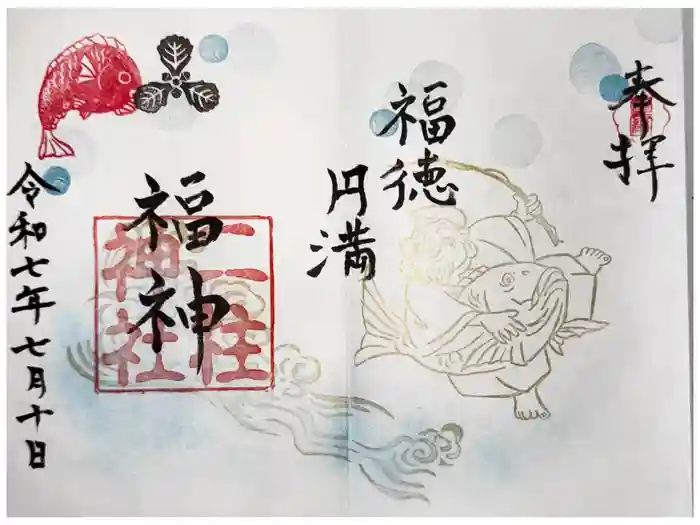 奉拝
福徳
円満
福神
二柱
神社
令和七年七月十日